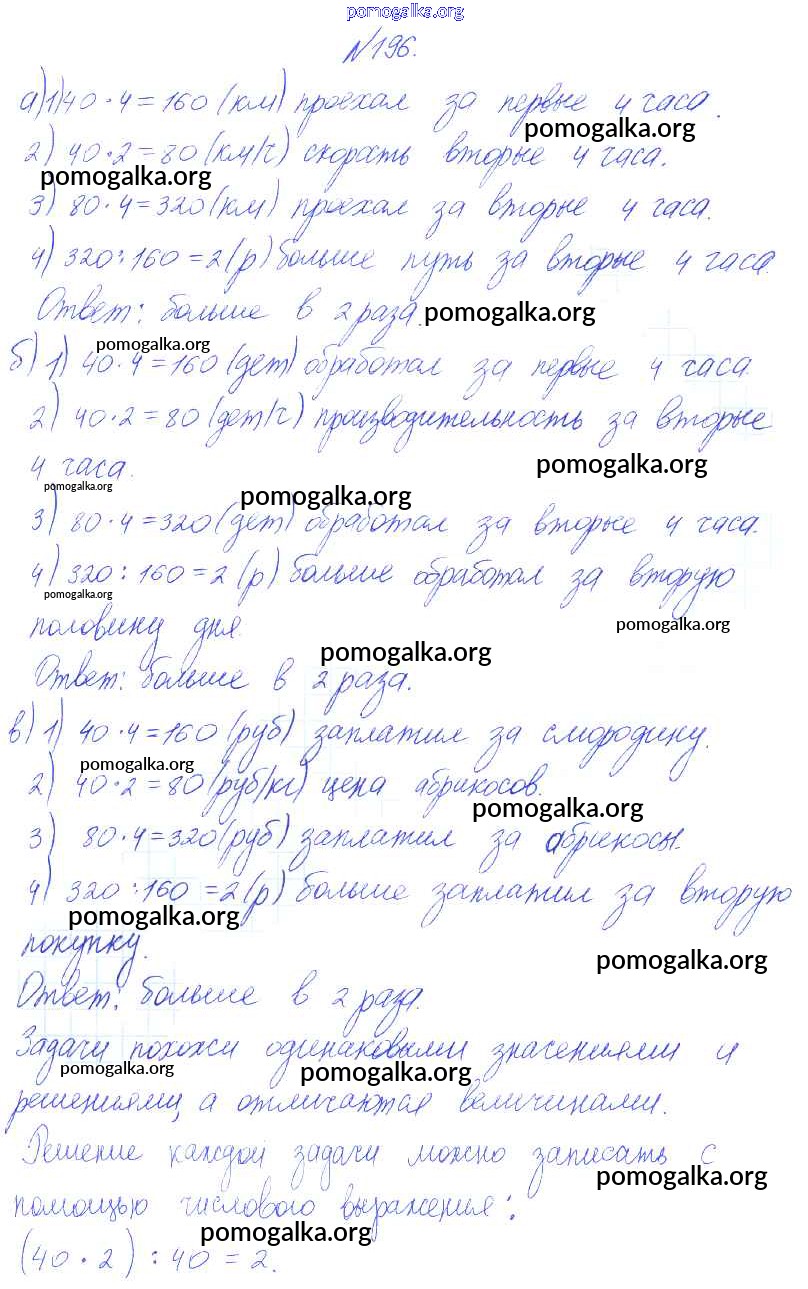 pomogalka.org
№196.
а) 1) 40·4=160 (км) проехал за первые 4 часа.
pomogalka.org
2) 40·2=80 (км/ч) скорость вторые 4 часа.
pomogalka.org
3) 80·4=320 (км) проехал за вторые 4 часа.
4) 320:160=2 (р) больше путь за вторые 4 часа.
Ответ: больше в 2 раза. pomogalka.org
pomogalka.org
б) 1) 40·4=160 (дет) обработал за первые 4 часа
2) 40·2=80 (дет/ч) производительность за вторые
4 часа. pomogalka.org
pomogalka.org pomogalka.org
3) 80·4=320 (дет) обработал за вторые 4 часа.
4) 320:160=2 (р) больше обработал за вторую
pomogalka.org
половину дня. pomogalka.org
pomogalka.org
Ответ: больше в 2 раза.
в) 1) 40·4=160 (руб) заплатил за смородину.
pomogalka.org
2) 40·2=80 (руб/кг) цена абрикосов.
pomogalka.org
3) 80·4=320 (руб) заплатил за абрикосы.
4) 320:160=2 (р) больше заплатил за вторую
pomogalka.org
покупку. pomogalka.org
Ответ: больше в 2 раза.
Задачи похожи одинаковыми значениями и
pomogalka.org pomogalka.org
решениями, а отличаются величинами.
Решение каждой задачи можно записать с
pomogalka.org
помощью числового выражения:
pomogalka.org
(40·2):40=2.